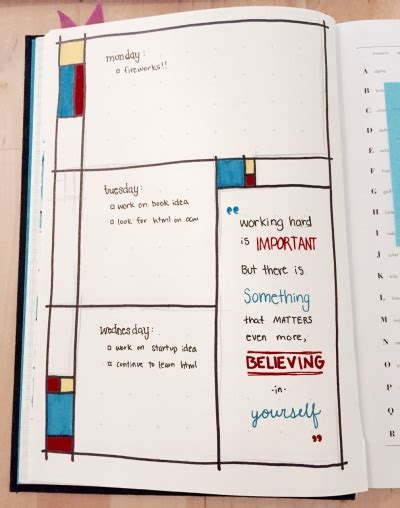 monday:
fireworks!!
tuesday:
work on book idea
look for html on ocw
wednesday:
work on startup idea
continue to learn html
“
working hard
is IMPORTANT
But there is
Something
that MATTERS
even more,
BELIEVING
-in-
yourself
”
A alpha
B
C
D
E
F
G
H
I
J
K
L
M
N
O
P
Q
R